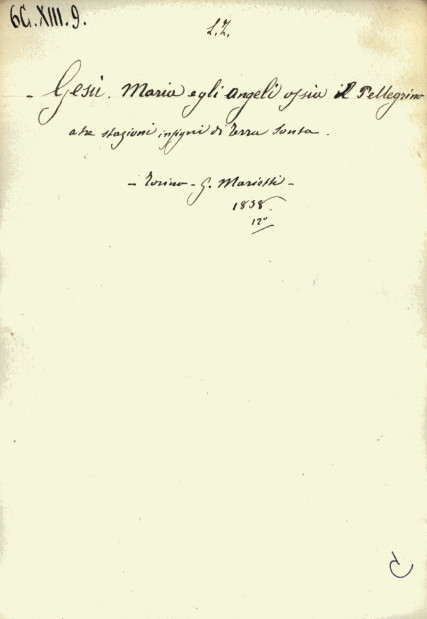 6C. XIII. 9.
L.Z.
- Gesù. Maria e gli angeli ossia il Pellegrino
a tre stazioni insigni di Terra Santa.
- Torino - G. Marietti -
1838.
12°